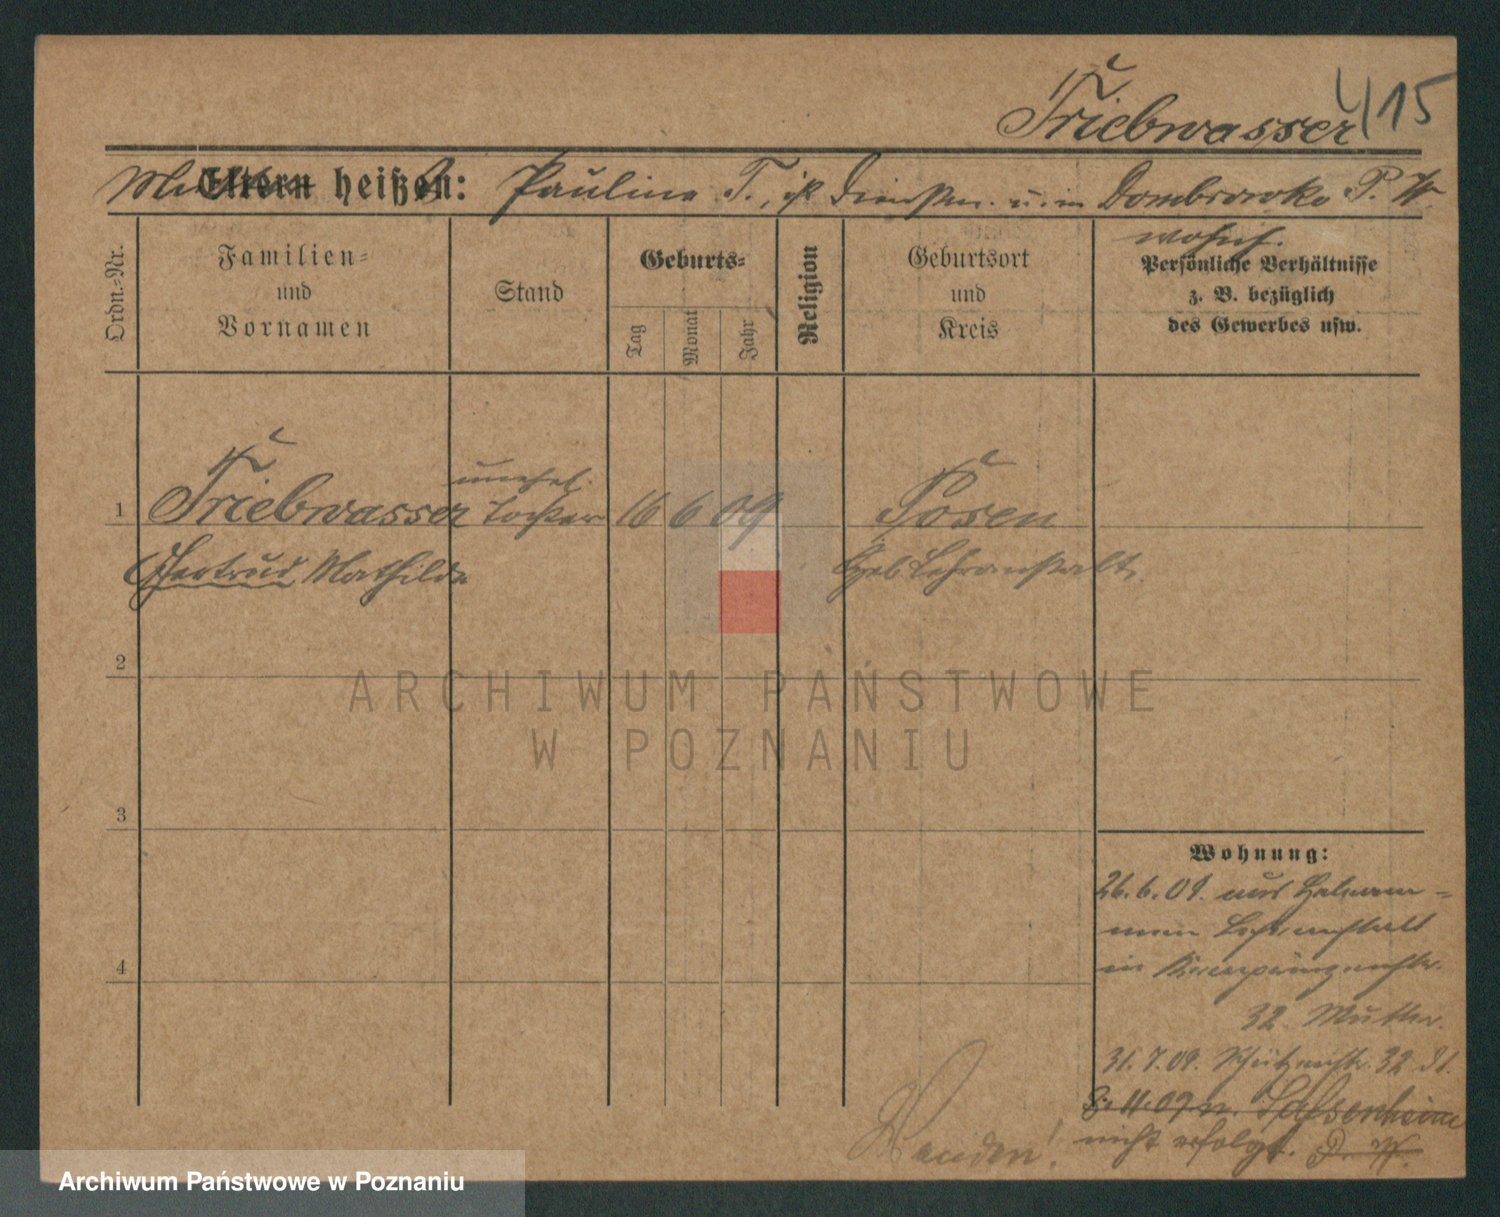 Triebwasser 4/15
Eltern heißen: Pauline T., ist Dienstm. u. in Dombrowko P. W.
wohnh.
Ordn.-Nr.
Familien-
und
Vornamen
Stand
Geburts-
Tag
Monat
Jahr
Religion
Geburtsort
und
Kreis
Persönliche Verhältnisse
z. B. bezüglich
des Gewerbes usw.
unehel.
1 Triebwasser Tochter 16 6 09 Posen
Gertrud Mathilde Heb Lehranstalt.
2
3
4
Wohnung:
26.6.09. aus Hebam=
men Lehranstalt
in
32. Mutter.
31.7.09. 32
8.11.09 n.
nicht erfolgt. P. W.
ARCHIWUM PAŃSTWOWE
W POZNANIU
Archiwum Państwowe w Poznaniu